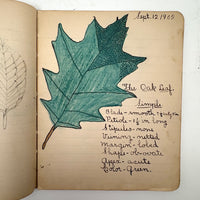 Sept. 12 1905
The Oak Leaf
Simple
Blade - smooth
Petiole - in long
Stipules - none
Veining - netted
Margin - lobed
Shape - obovate
Apex - acute
Color - Green.